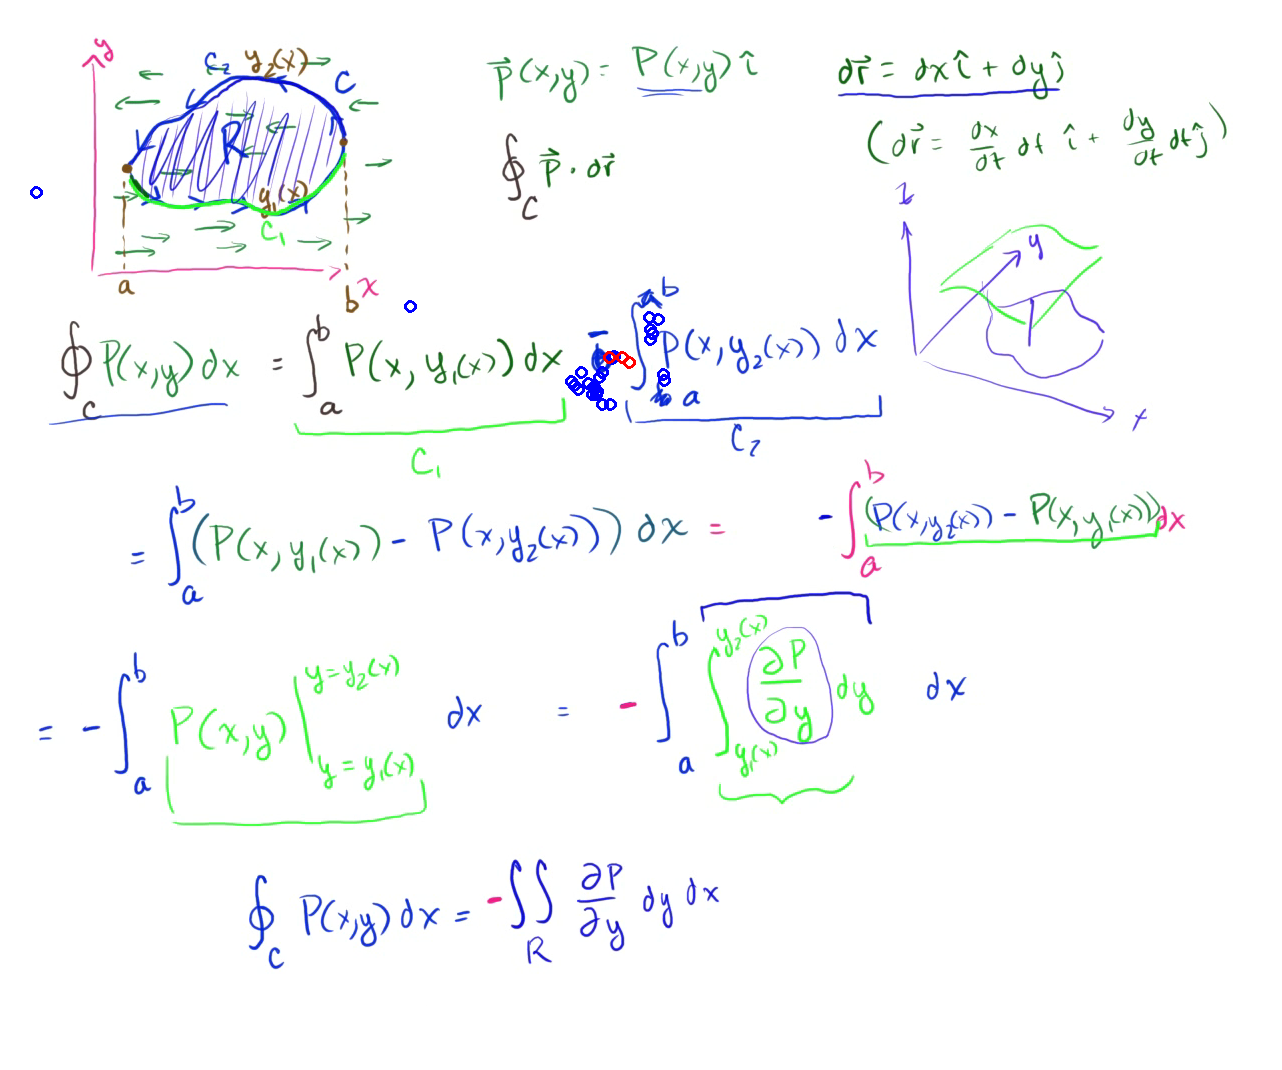 y
C₂ y₂(x) C
R
y₁(x)
C₁
a b x
P⃗(x,y) = P(x,y) î
dr⃗ = dx î + dy ĵ
(dr⃗ = dx/dt dt î + dy/dt dt ĵ)
∮_C P⃗ · dr⃗
z y x
∮_C P(x,y) dx = ∫_a^b P(x, y₁(x)) dx - ∫_a^b P(x, y₂(x)) dx
C₁ C₂
= ∫_a^b (P(x, y₁(x)) - P(x, y₂(x))) dx = - ∫_a^b (P(x, y₂(x)) - P(x, y₁(x))) dx
= - ∫_a^b P(x,y) |_{y = y₁(x)}^{y = y₂(x)} dx = - ∫_a^b ∫_{y₁(x)}^{y₂(x)} ∂P/∂y dy dx
∮_C P(x,y) dx = - ∬_R ∂P/∂y dy dx